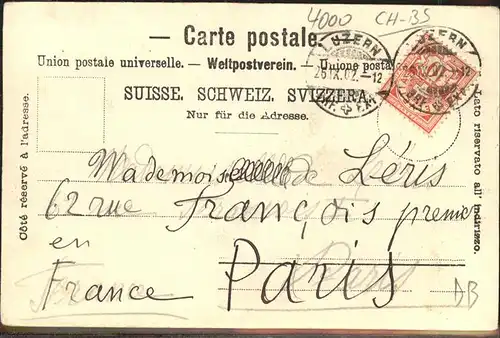 4000 CH-BS
— Carte postale.
Union postale universelle. — Weltpostverein. — Unione posta
SUISSE. SCHWEIZ. SVIZZERA.
Nur für die Adresse.
Côté réservé à l'adresse.
Lato riservato all' indirizzo.
LUZERN
26.IX.02.-12
BRF. EXP.
LUZERN
-12
BRF. EXP.
Mademoiselle Léris
62 rue François premier
en Paris
France
DB